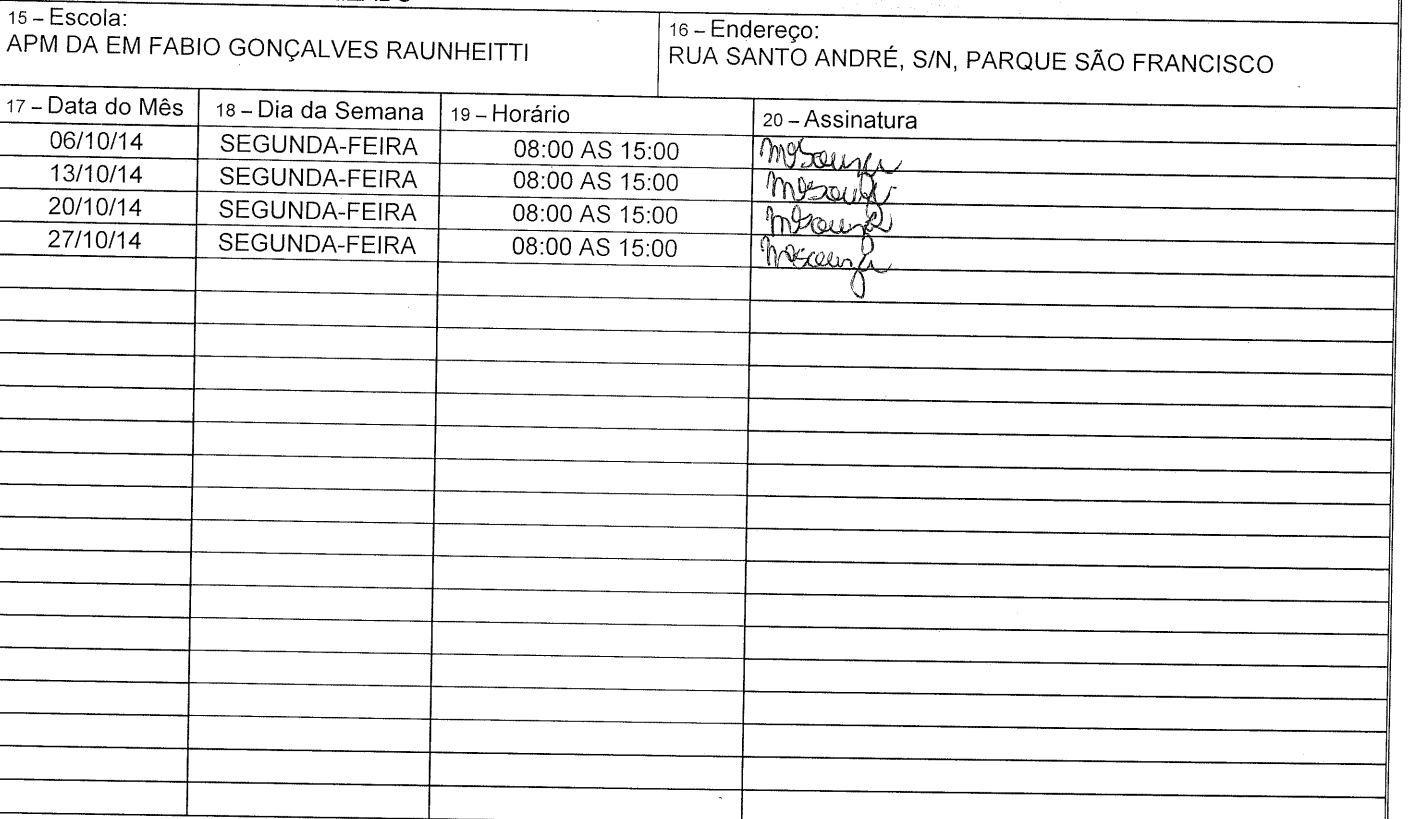 15 – Escola:
APM DA EM FABIO GONÇALVES RAUNHEITTI
16 – Endereço:
RUA SANTO ANDRÉ, S/N, PARQUE SÃO FRANCISCO
17 – Data do Mês 18 – Dia da Semana 19 – Horário 20 – Assinatura
06/10/14 SEGUNDA-FEIRA 08:00 AS 15:00
13/10/14 SEGUNDA-FEIRA 08:00 AS 15:00
20/10/14 SEGUNDA-FEIRA 08:00 AS 15:00
27/10/14 SEGUNDA-FEIRA 08:00 AS 15:00